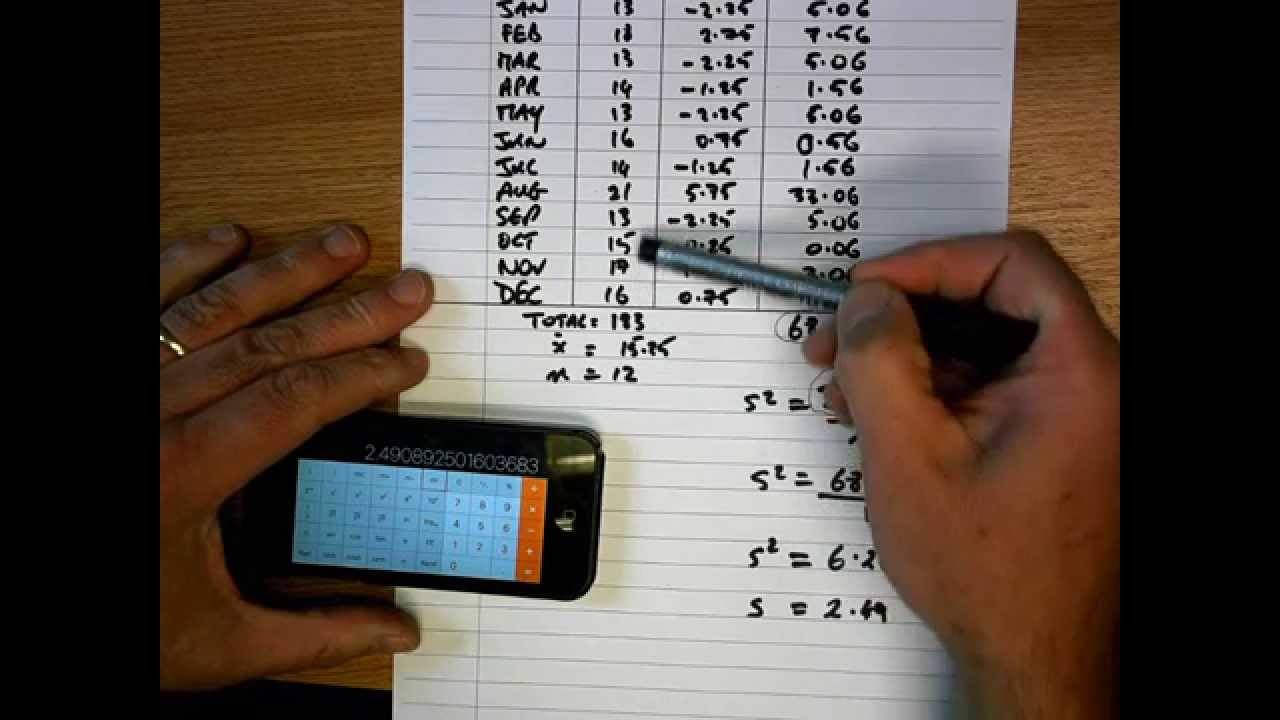 JAN 13 -2.25 5.06
FEB 18 2.75 7.56
MAR 13 -2.25 5.06
APR 14 -1.25 1.56
MAY 13 -2.25 5.06
JUN 16 0.75 0.56
JUL 14 -1.25 1.56
AUG 21 5.75 33.06
SEP 13 -2.25 5.06
OCT 15 0.06
NOV 17
DEC 16 0.75
TOTAL = 183
x̄ = 15.25
n = 12
s² =
s² = 68
s² = 6.2
s = 2.49
2.490892501603683
7 8 9
4 5 6
1 2 3
0